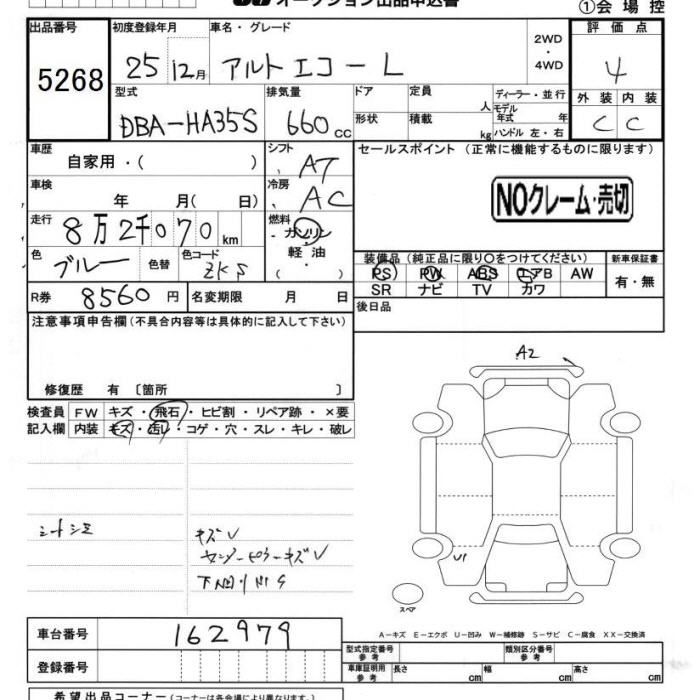 オークション出品申込書
①会場控
出品番号 初度登録年月 車名・グレード 2WD・4WD 評価点
5268 25 12月 アルト エコ-L 4
型式 排気量 ドア 定員 人 ディーラー・並行 外装 内装
DBA-HA35S 660cc 形状 積載 kg モデル年式 年 ハンドル 左・右 C C
車歴 自家用・( ) シフト AT セールスポイント(正常に機能するものに限ります)
車検 年 月( 日) 冷房 AC NOクレーム・売切
走行 8万2千070km 燃料 ガソリン 軽油 ( )
色 ブルー 色替 色コード ZKS 装備品(純正品に限り○をつけてください) 新車保証書
PS PW ABS エアB AW 有・無
R券 8560円 名変期限 月 日 SR ナビ TV カワ
注意事項申告欄(不具合内容等は具体的に記入して下さい) 後日品
修復歴 有〔箇所 〕
A2
検査員 FW キズ・飛石・ヒビ割・リペア跡・×要
記入欄 内装 キズ・汚レ・コゲ・穴・スレ・キレ・破レ
シートシミ キズV
下回りサビ
U1
スペア
車台番号 162979
A-キズ E-エクボ U-凹み W-補修跡 S-サビ C-腐食 XX-交換済
登録番号 型式指定番号参考 類別区分番号参考
車庫証明用参考 長さ cm 幅 cm 高さ cm
希望出品コーナー(コーナーは各会場により異なります)